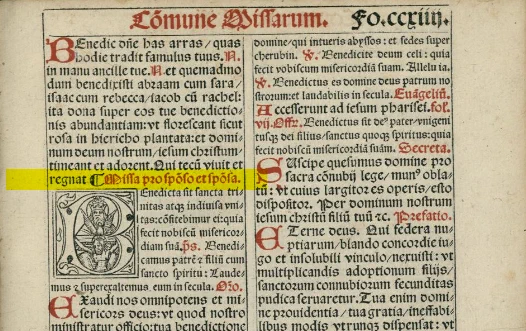 Cõmune Missarum. Fo.ccxiiij.
BEnedic dñe has arras/quas
hodie tradit famulus tuus. N.
in manu ancille tue. N. et quemadmo
dum benedixisti abraam cum sara/
isaac cum rebecca/iacob cũ rachel:
ita dona super eos tue benedictio-
nis abundantiam: vt florescant sicut
rosa in hiericho plantata: et domi
num deum nostrum/iesum christum/
timeant et adorent. Qui tecũ viuit et
regnat ¶ Missa pro spõso et spõsa.
BEnedicta sit sancta tri
nitas atqȝ indiuisa vni
tas: cõfitebimur ei: quia
fecit nobiscũ misericor-
diam suã. ps. Benedi-
camus patrẽ ⁊ filiũ cum
sancto spiritu: Laude-
mus ⁊ superexaltemus eum in secula. Oro.
EXaudi nos omnipotens et mi-
sericors deus: vt quod nostro
ministratur officio: tua benedictione
domine/qui intueris abyssos: et sedes super
cherubin. ℣. Benedicite deum celi: quia
fecit vobiscum misericordiã suam. Allelu ia.
℣. Benedictus es domine deus patrum no
strorum: et laudabilis in secula. Euangeliũ.
ACcesserunt ad iesum pharisei. fol.
vij. Offr. Benedictus sit deus pater/vnigeni
tusqȝ dei filius/sanctus quoqȝ spiritus: quia
fecit nobiscũ misericordiã suam. Secreta.
SUscipe quesumus domine pro
sacra cõnubij lege/munus obla-
tũ: vt cuius largitor es operis/esto
dispositor. Per dominum nostrum
iesum christũ filiũ tuũ ⁊c. Prefatio.
ETerne deus. Qui federa nu-
ptiarum/blando concordie iu-
go et insolubili vinculo/nexuisti: vt
multiplicandis adoptionum filijs/
sanctorum connubiorum fecunditas
pudica seruaretur. Tua enim domi-
ne prouidentia/tua gratia/ineffabi-
libus modis vtrunqȝ dispensans: